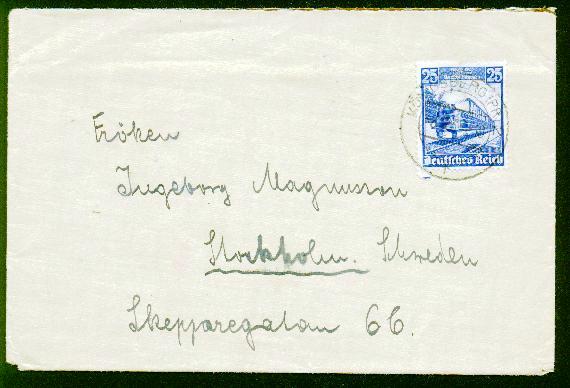 25 25
KÖNIGSBERG (PR)
Deutsches Reich
Fröken
Ingeborg Magnusson
Stockholm. Schweden
Skepparegatan 66.